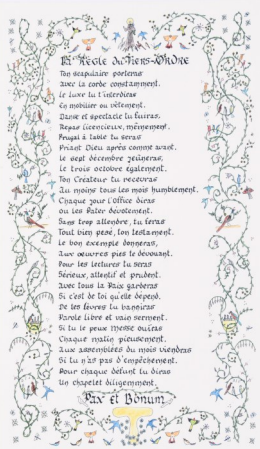 La Règle du Tiers-Ordre
Ton scapulaire porteras
Avec la corde constamment.
Le luxe tu t'interdiras
En mobilier ou vêtement.
Danse et spectacle tu fuiras,
Repas licencieux, mêmement.
Frugal à table tu seras
Priant Dieu après comme avant.
Le sept décembre jeûneras,
Le trois octobre également.
Ton Créateur tu recevras
Au moins tous les mois humblement.
Chaque jour l'Office diras
Ou les Pater dévotement.
Sans trop attendre, tu feras
Tout bien pesé, ton testament.
Le bon exemple donneras,
Aux oeuvres pies te dévouant.
Pour les lectures tu seras
Sérieux, attentif et prudent.
Avec tous la Paix garderas
Si c'est de toi qu'elle dépend.
De tes lèvres tu banniras
Parole libre et vain serment.
Si tu le peux Messe ouïras
Chaque matin pieusement.
Aux assemblées du mois viendras
Si tu n'as pas d'empêchement.
Pour chaque défunt tu diras
Un chapelet diligemment.
Pax et Bonum